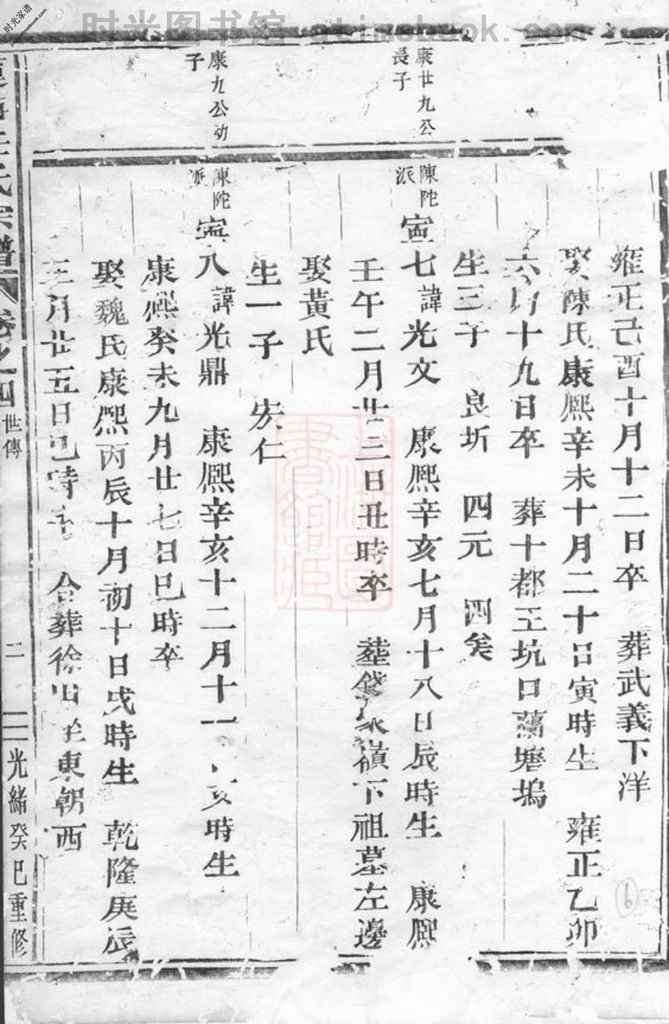 时光图书馆 - atimebook.com
时光家谱
雍正己酉十月十二日卒 葬武義下洋
娶陳氏康熙辛未十月二十日寅時生 雍正乙卯
六月十九日卒 葬十都王坑口萬塘塢
生三子 良圻 四元 四矣
康廿九公長子
陳陀派
寗七諱光文 康熙辛亥七月十八日辰時生 康熙
壬午二月廿三日丑時卒 葬錢家嶺下祖墓左邊
娶黃氏
生一子 宏仁
康九公幼子
陳陀派
寗八諱光鼎 康熙辛亥十二月十一 亥時生
康熙癸未九月廿七日巳時卒
娶魏氏康熙丙辰十月初十日戌時生 乾隆庚辰
三月廿五日巳時卒 合葬徐山 東朝西
氏宗譜 卷之四 世傳 二 光緒癸巳重修
6